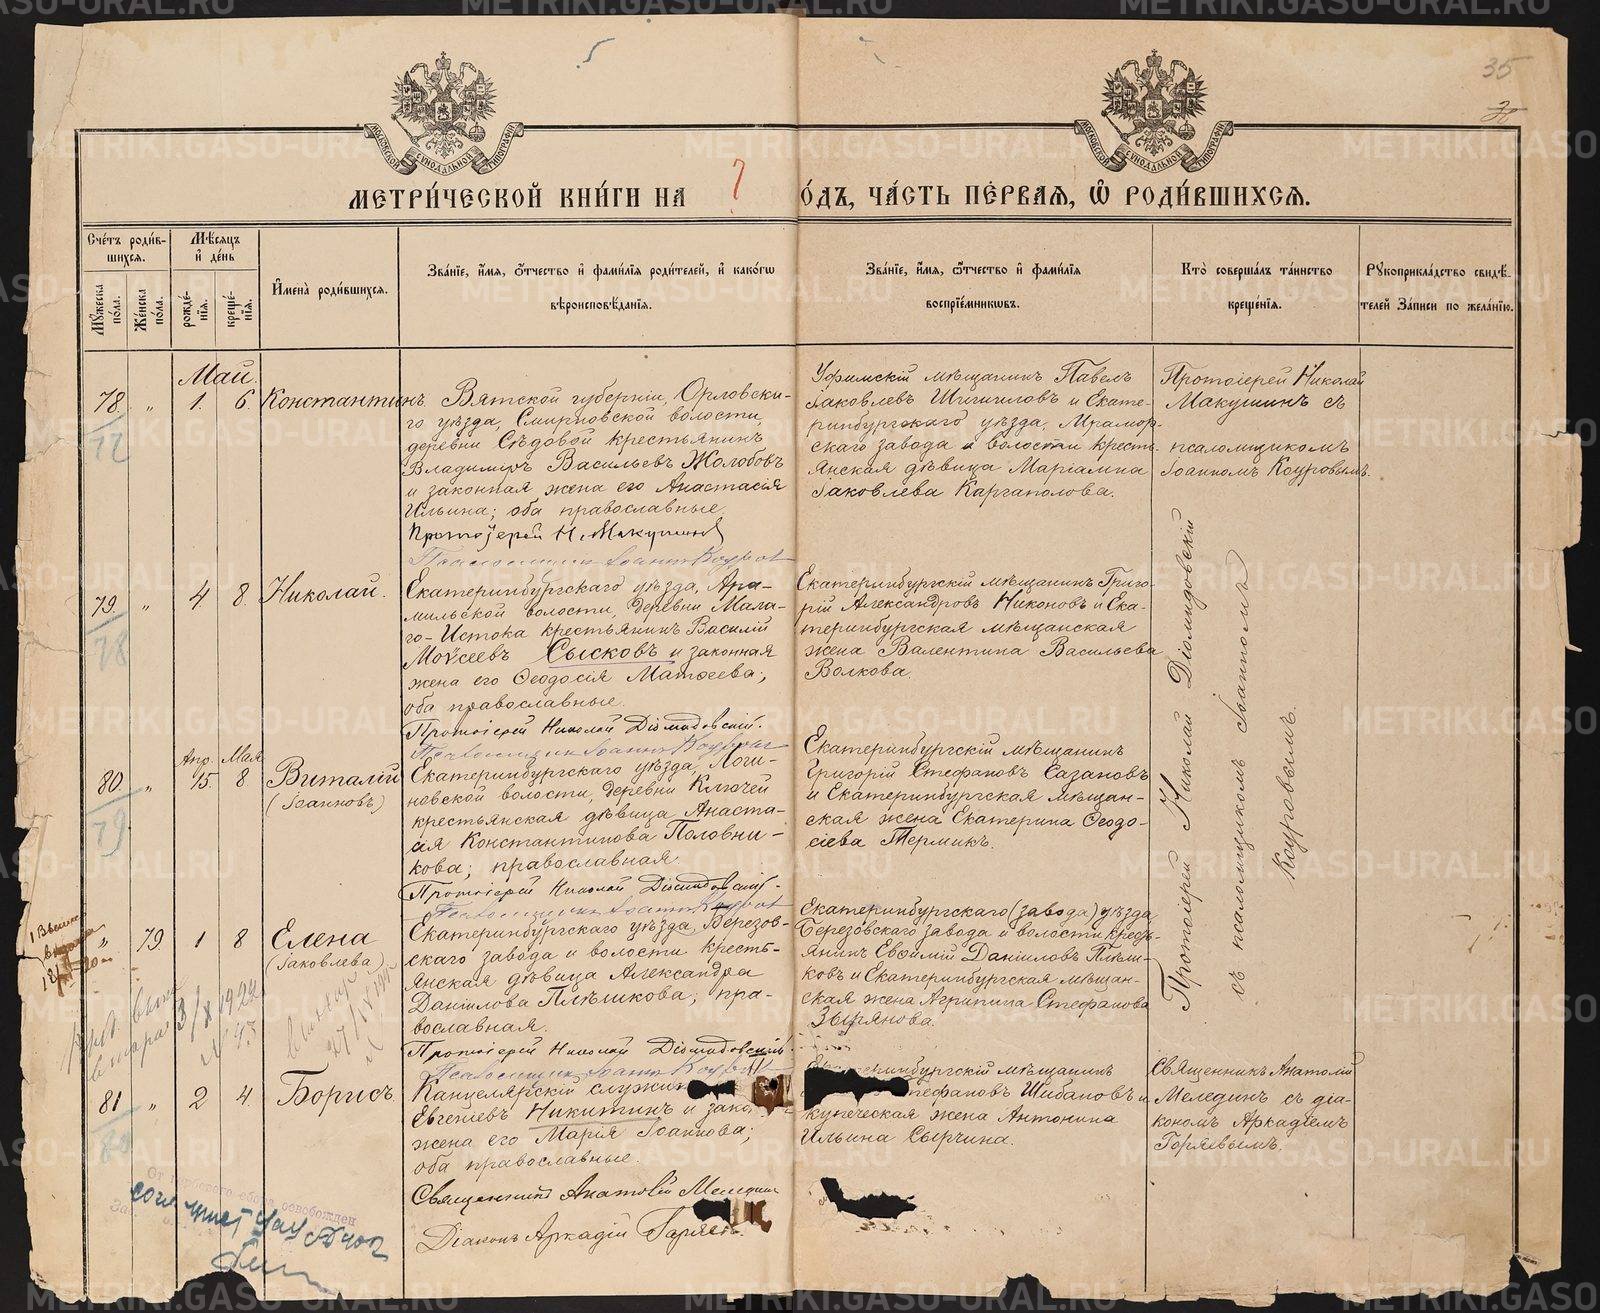 35
МЕТРИ́ЧЕСКОЙ КНИ́ГИ НА ? ОДЪ, ЧА́СТЬ ПЕ́РВАЯ, Ѽ РОДИ́ВШИХСЯ.
Сче́тъ роди́в-
шихся.
Му́жеска по́ла.
Же́нска по́ла.
Мѣ́сяцъ и де́нь
рожде́нїя.
креще́нїя.
И́мена̀ роди́вшихся.
Зва́нїе, и́мя, ѻ́тчество и фами́лїя роди́телей, и како́гѡ
вѣроисповѣ́данїя.
Зва́нїе, и́мя, ѻ́тчество и фами́лїя
воспрїе́мниковъ.
Кто̀ соверша́лъ та́инство
креще́нїя.
Рꙋкоприкла́дство свидѣ́-
телей за́писи по жела́нїю.
Май.
78 " 1. 6. Константинъ
77
Вятской губерніи, Орловска-
го уѣзда, Смирновской волости,
деревни Сѣдовой крестьянинъ
Владиміръ Васильевъ Жолобовъ
и законная жена его Анастасія
Ильина; оба православные.
Протоіерей Н. Макушинъ
Псаломщикъ Іоаннъ Коуров
Уфимскій мѣщанинъ Павелъ
Іаковлевъ Шигичиловъ и Екате-
ринбургскаго уѣзда, Мрамор-
скаго завода и волости кресть-
янская дѣвица Маріамна
Іаковлева Каргаполова.
Протоіерей Николай
Макушинъ съ
псаломщикомъ
Іоанномъ Коуровымъ.
79. " 4 8. Николай.
78
Екатеринбургскаго уѣзда, Ара-
мильской волости, деревни Мала-
го-Истока крестьянинъ Василій
Моѵсеевъ Сысковъ и законная
жена его Ѳеодосія Матѳеева;
оба православные.
Протоіерей Николай Діомидовскій.
Псаломщикъ Іоаннъ Коуров
Екатеринбургскій мѣщанинъ Григо-
рій Александровъ Никоновъ и Ека-
теринбургская мѣщанская
жена Валентина Васильева
Волкова.
Протоіерей Николай Діомидовскій
съ псаломщикомъ Іоанномъ
Коуровымъ.
Апр. Мая
80. " 15. 8 Виталій
(Іоанновъ)
79
Екатеринбургскаго уѣзда, Логи-
новской волости, деревни Ключей
крестьянская дѣвица Анаста-
сія Константинова Половни-
кова; православная.
Протоіерей Николай Діомидовскій.
Псаломщикъ Іоаннъ Коуров
Екатеринбургскій мѣщанинъ
Григорій Стефановъ Сазановъ
и Екатеринбургская мѣщан-
ская жена Екатерина Ѳеодо-
сіева Термикъ.
" 79. 1 8 Елена
(Іаковлева)
Екатеринбургскаго уѣзда, Березов-
скаго завода и волости кресть-
янская дѣвица Александра
Даніилова Плѣшкова; пра-
вославная.
Протоіерей Николай Діомидовскій.
Псаломщикъ Іоаннъ Коуров
Екатеринбургскаго (завода) уѣзда
Березовскаго завода и волости кресть-
янинъ Евѳимій Даніиловъ Плѣш-
ковъ и Екатеринбургская мѣщан-
ская жена Агрипина Стефанова
Зырянова.
3/X 1922
81. " 2 4. Борисъ
80
Канцелярскій служи
Евгеніевъ Никитинъ и зако
жена его Марія Іоаннова;
оба православные.
Священникъ Анатолій Меледин
Діаконъ Аркадій Горяев.
Екатеринбургскій мѣщанинъ
Стефановъ Шибановъ и
купеческая жена Антонина
Ильина Сырчина.
Священникъ Анатолій
Мелединъ съ діа-
кономъ Аркадіемъ
Горяевымъ.
освобожден
METRIKI.GASO-URAL.RU